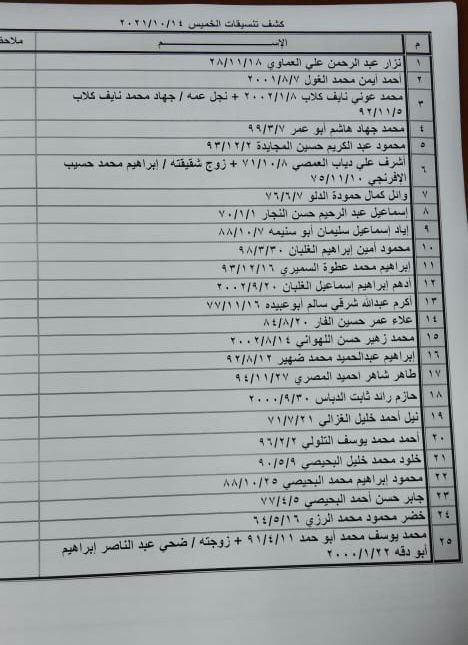 كشف تنسيقات الخميس ٢٠٢١/١٠/١٤
م الإســـم ملاحظ
١ نزار عبد الرحمن علي العماوي ٢٨/١١/١٨
٢ أحمد أيمن محمد الغول ٢٠٠١/٨/٧
٣ محمد عوني نايف كلاب ٢٠٠٢/١/٨ + نجل عمه / جهاد محمد نايف كلاب
٩٢/١١/٥
٤ محمد جهاد هاشم أبو عمر ٩٩/٣/٧
٥ محمود عبد الكريم حسين المجايدة ٩٣/١٢/٢
٦ أشرف علي دياب العمصي ٧١/١٠/٨ + زوج شقيقته / إبراهيم محمد حسيب
الافرنجي ٧٥/١١/١٠
٧ وائل كمال حمودة الدلو ٧٦/٦/٧
٨ إسماعيل عبد الرحيم حسن النجار ٧٠/١/١
٩ إياد إسماعيل سليمان أبو سنيمه ٨٨/١٠/٧
١٠ محمود أمين إبراهيم الغلبان ٩٨/٣/٣٠
١١ إبراهيم محمد عطوة السميري ٩٣/١٢/١٦
١٢ أدهم إبراهيم إسماعيل الغلبان ٢٠٠٢/٩/٢٠
١٣ أكرم عبدالله شرقي سالم أبوعبيده ٧٧/١١/١٦
١٤ علاء عمر حسين الفار ٨٤/٨/٢٠
١٥ محمد زهير حسن اللهواني ٢٠٠٢/٨/١٤
١٦ إبراهيم عبدالحميد محمد ضهير ٩٢/٨/١٢
١٧ طاهر شاهر احميد المصري ٩٤/١١/٢٧
١٨ حازم رائد ثابت الدباس ٢٠٠٠/٩/٣٠
١٩ نيل أحمد خليل الغزالي ٧١/٧/٢١
٢٠ أحمد محمد يوسف التلولي ٩٦/٢/٢
٢١ خلود محمد خليل البحيصي ٩٠/٥/٩
٢٢ محمود إبراهيم محمد البحيصي ٨٨/١٠/٢٥
٢٣ جابر حسن أحمد البحيصي ٧٧/٤/٥
٢٤ خضر محمود محمد الرزي ٦٤/٥/١٦
٢٥ محمد يوسف محمد أبو حمد ٩١/٤/١١ + زوجته / ضحي عبد الناصر إبراهيم
أبو دقه ٢٠٠٠/١/٢٢